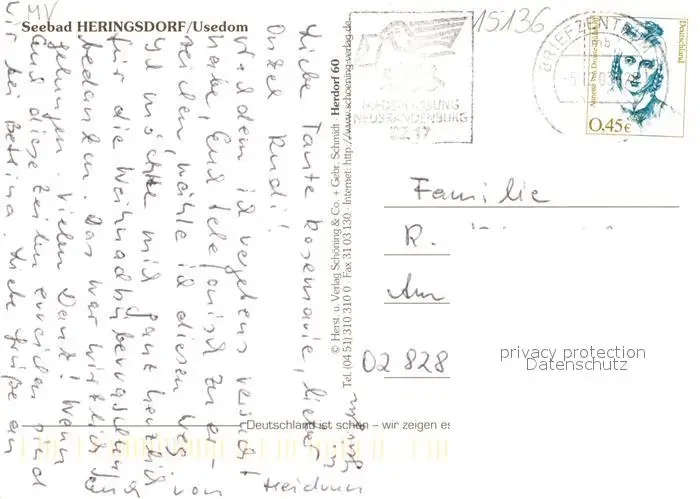 MV
Seebad HERINGSDORF/Usedom
15136
BRIEFZENTR
Deutschland
Annette von Droste-Hülshoff
0,45€
NEUBRANDENBURG
22 17
Liebe Tante Rosemarie, lieber
Onkel Rudi!
Nachdem ich vergebens versucht
habe, Euch telefonisch zu er-
reichen, wähle ich diesen Weg.
Ich möchte mich ganz herzlich
für die Weihnachtsüberraschung
bedanken. Das war wirklich
gelungen. Vielen Dank! Wenn
Euch diese Zeilen erreichen sind
wir bei Bettina. Liebe Grüße an
Heidrun
© Herst. u. Verlag Schöning & Co. + Gebr. Schmidt · Herdorf 60
Tel. (04 51) 310 310 0 · Fax 31 03 130 · Internet: http://www.schoening-verlag.de
Familie
R.
Am
02828
privacy protection
Datenschutz
Deutschland ist schön – wir zeigen es